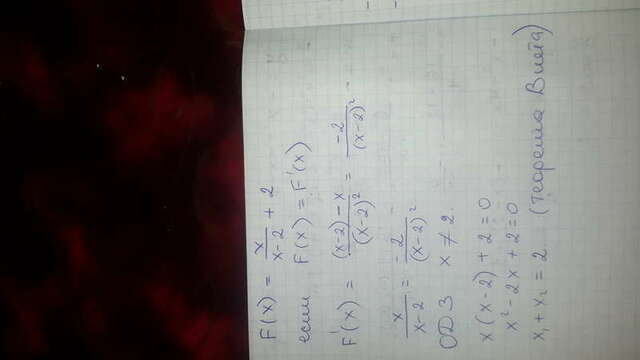 F(x) = x/(x-2) + 2
если F(x) = F'(x)
F'(x) = ((x-2)-x)/(x-2)² = -2/(x-2)²
x/(x-2) = -2/(x-2)²
ОДЗ x ≠ 2
x(x-2)+2=0
x²-2x+2=0
x₁+x₂=2 (теорема Виета)